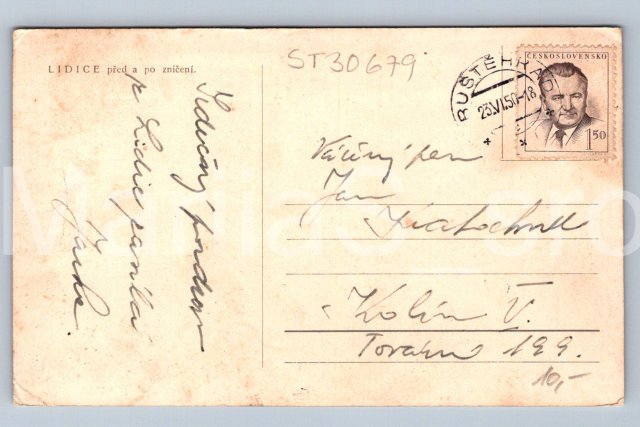 LIDICE před a po zničení.
ST30679
BUŠTĚHRAD
23.VI.50-18
ČESKOSLOVENSKO
1.50
Srdečný pozdrav
z Lidic posílá
Jarka.
Vážený pan
Jan
Kolín V.
Tovární 199.
10,-